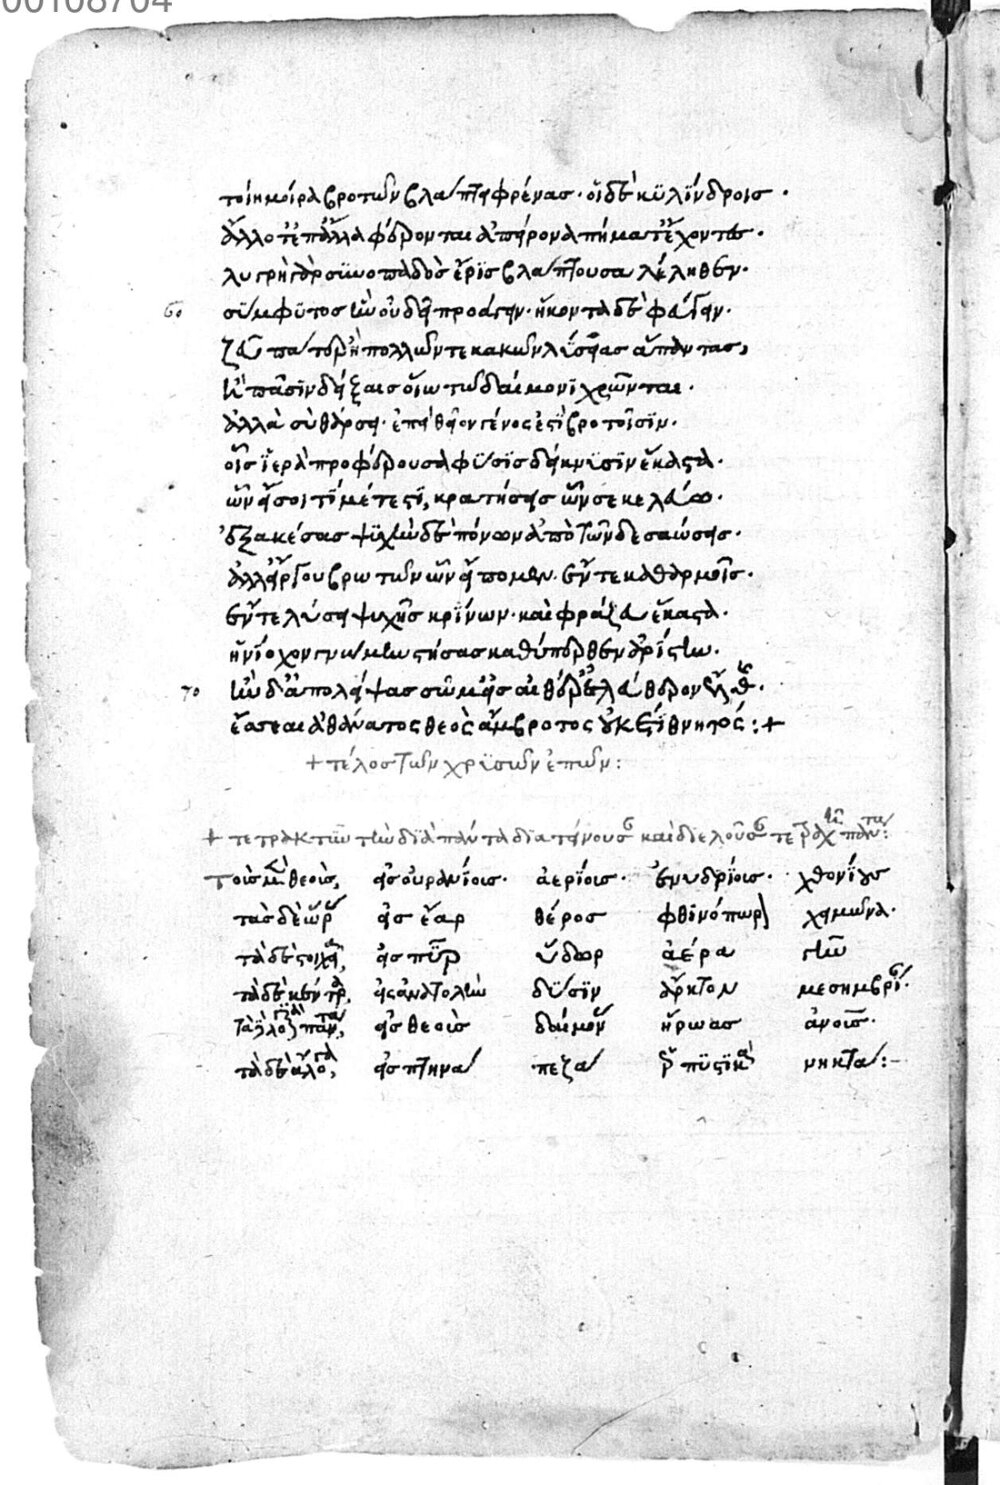 00108704
τοίη μοίρα βροτῶν βλάπτει φρένας· οἱ δὲ κϋλίνδροις·
ἄλλοτ' ἐπ' ἄλλα φέρονται ἀπείρονα πήματ' ἔχοντες·
λυγρὴ γὰρ σϋνοπαδὸσ ἔρϊς βλάπτουσα λέληθεν·
60 σϋμφϋτοσ ἣν οὐ δεῖ προάγειν· εἴκοντα δὲ φεύγειν·
ζεῦ πάτερ ἢ πολλῶν τε κακῶν λύσειας ἅπαντας,
ἢ πᾶσϊν δείξαις οἵω τῶ δαίμονϊ χρῶνται·
ἀλλὰ σὺ θάρσει· ἐπεὶ θεῖον γένος ἐστὶ βροτοῖσϊν·
οἷς ϊερὰ προφέρουσα φϋσϊς δείκνϋσϊν ἕκαστα·
ὧν εἴ σοι τϊ μέτεστϊ, κρατήσεις ὧν σε κελεύω·
ἐξακέσας ψϋχὴν δὲ πόνων ἀπὸ τῶνδε σαώσεις·
ἀλλ' εἴργου βρωτῶν ὧν εἴπομεν· ἔν τε καθαρμοῖς·
ἔν τε λύσει ψυχῆς κρϊνων· καὶ φράζευ ἕκαστα·
ἡνϊοχον γνώμην στήσας καθύπερθεν ἀρίστην·
70 ἢν δ' ἀπολείψας σῶμ' ἐς αἰθέρ' ἐλεύθερον ἔλθης·
ἔσσεαι ἀθάνατος θεὸς ἄμβροτος οὐκ ἔτι θνητός:+
+ τέλος τῶν χρϋσῶν ἐπῶν:
+ τετρακτὺν τὴν δϊὰ πάντα δϊατείνουσ καὶ διελοῦσ τετραχῆ πάντα:
Τοὺσ μὲν θεοὺς, εἰς οὐρανίους· ἀερίους· ἐνυδρίους· χθονίους
τὰσ δὲ ὥρας εἰς ἔαρ θέρος φθϊνόπωρον χειμῶνα·
τὰ δὲ στοιχεῖα, εἰς πῦρ ὕδωρ ἀέρα γῆν
τὰ δὲ κέντρα, εἰς ἀνατολὴν δϋσϊν ἄρκτον μεσημβρίαν·
τὰ λογικὰ πάντα, εἰς θεοὺς δαίμονας ἥρωας ἀνους·
τὰ δὲ ἄλογα, εἰς πτηνὰ πεζὰ ἑρπϋστϊκὰ νηκτά:–